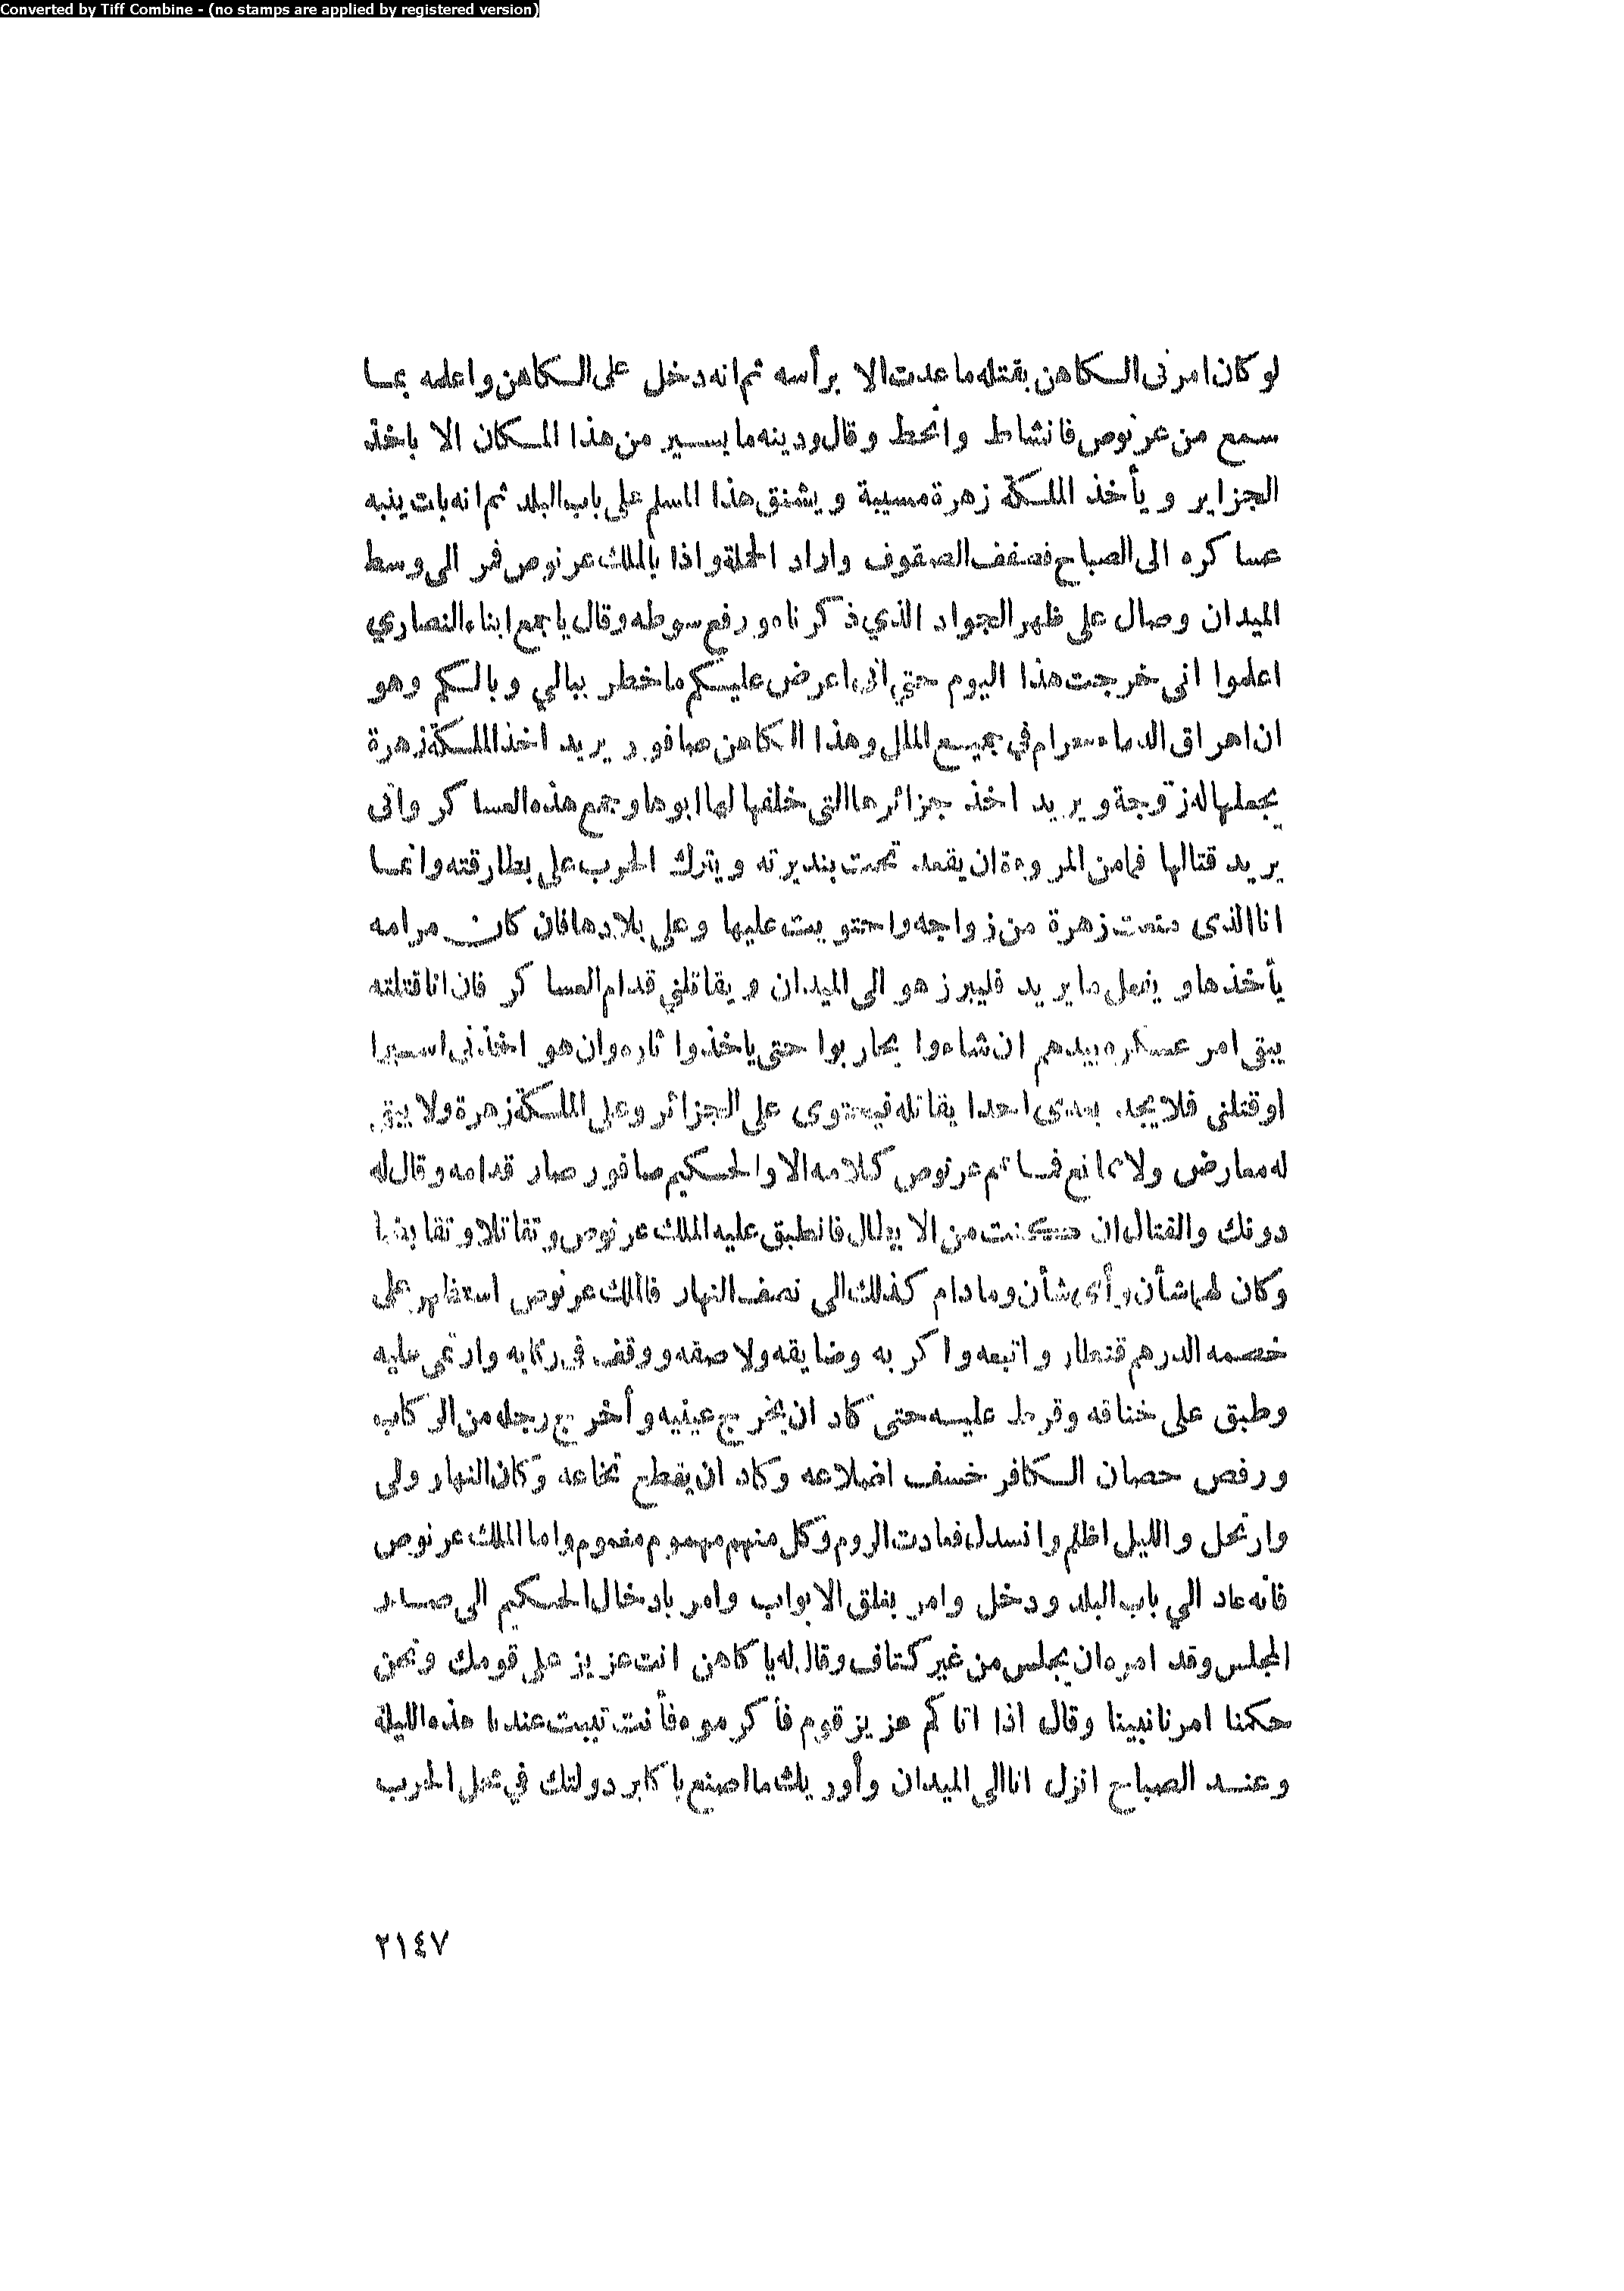 Converted by Tiff Combine - (no stamps are applied by registered version)
لو كان امرنى الكاهن بقتله ما عدت الا برأسه ثم انه دخل على الكاهن واعلمه بما
سمع من عرنوص فانشاط وانحط وقال ودينه ما يسير من هذا المكان الا باخذ
الجزاير و يأخذ الملكة زهرة مسيبة و يشنق هذا المسلم على باب البلد ثم انه بات ينبه
عساكره الى الصباح فصفف الصفوف واراد الحملة واذا بالملك عرنوص قمر الى وسط
الميدان وصال على ظهر الجواد الذي ذكرناه ورفع سوطه وقال يا جمع ابناء النصاري
اعلموا انى خرجت هذا اليوم حتي انى اعرض عليكم ما خطر ببالي وبالكم وهو
ان اهراق الدماء حرام في جميع الملل وهذا الكاهن صافور يريد اخذ الملكة زهرة
يجعلها له زوجة و يريد اخذ جزائرها التى خلفها لها ابوها وجمع هذه العساكر واتى
يريد قتالها فما من المروءة ان يقعد تحت بنديرته ويترك الحرب على بطارقته وانما
انا الذى منعت زهرة من زواجه واحتويت عليها وعلى بلادها فان كان مرامه
يأخذها ويفعل ما يريد فليبرز هو الى الميدان ويقاتلني قدام العساكر فان انا قتلته
يبقى امر عسكره بيدهم ان شاءوا يحاربوا حتى ياخذوا ثاره وان هو اخذنى اسيرا
اوقتلنى فلا يجد بعدى احدا يقاتله فيحتوى على الجزائر وعلى الملكة زهرة ولا يبقى
له معارض ولا ممانع فما تم عرنوص كلامه الا والحكيم صافور صار قدامه وقال له
دونك والقتال ان كنت من الابطال فانطبق عليه الملك عرنوص وتقاتلا وتقابضا
وكان لهما شأن وأى شأن وما دام كذلك الى نصف النهار فالملك عرنوص استظهر على
خصمه الدرهم قنطار واتبعه واكربه وضايقه ولاصقه ووقف فى ركابه وارتمى عليه
وطبق على خناقه وقرط عليه حتى كاد ان يخرج عينيه وأخرج رجله من الركاب
ورفص حصان الكافر خسف اضلاعه وكاد ان يقطع نخاعه وكان النهار ولى
وارتحل والليل اظلم وانسدل فعادت الروم وكل منهم مهموم مغموم واما الملك عرنوص
فانه عاد الي باب البلد ودخل وامر بغلق الابواب وامر بادخال الحكيم الى صدر
المجلس وقد امره ان يجلس من غير كتاف وقال له يا كاهن انت عزيز على قومك ونحن
حكمنا امرنا نبينا وقال اذا اتاكم عزيز قوم فأكرموه فأنت تبيت عندنا هذه الليلة
وعند الصباح انزل انا الى الميدان وأوريك ما اصنع باكابر دولتك في محل الحرب
٢١٤٧